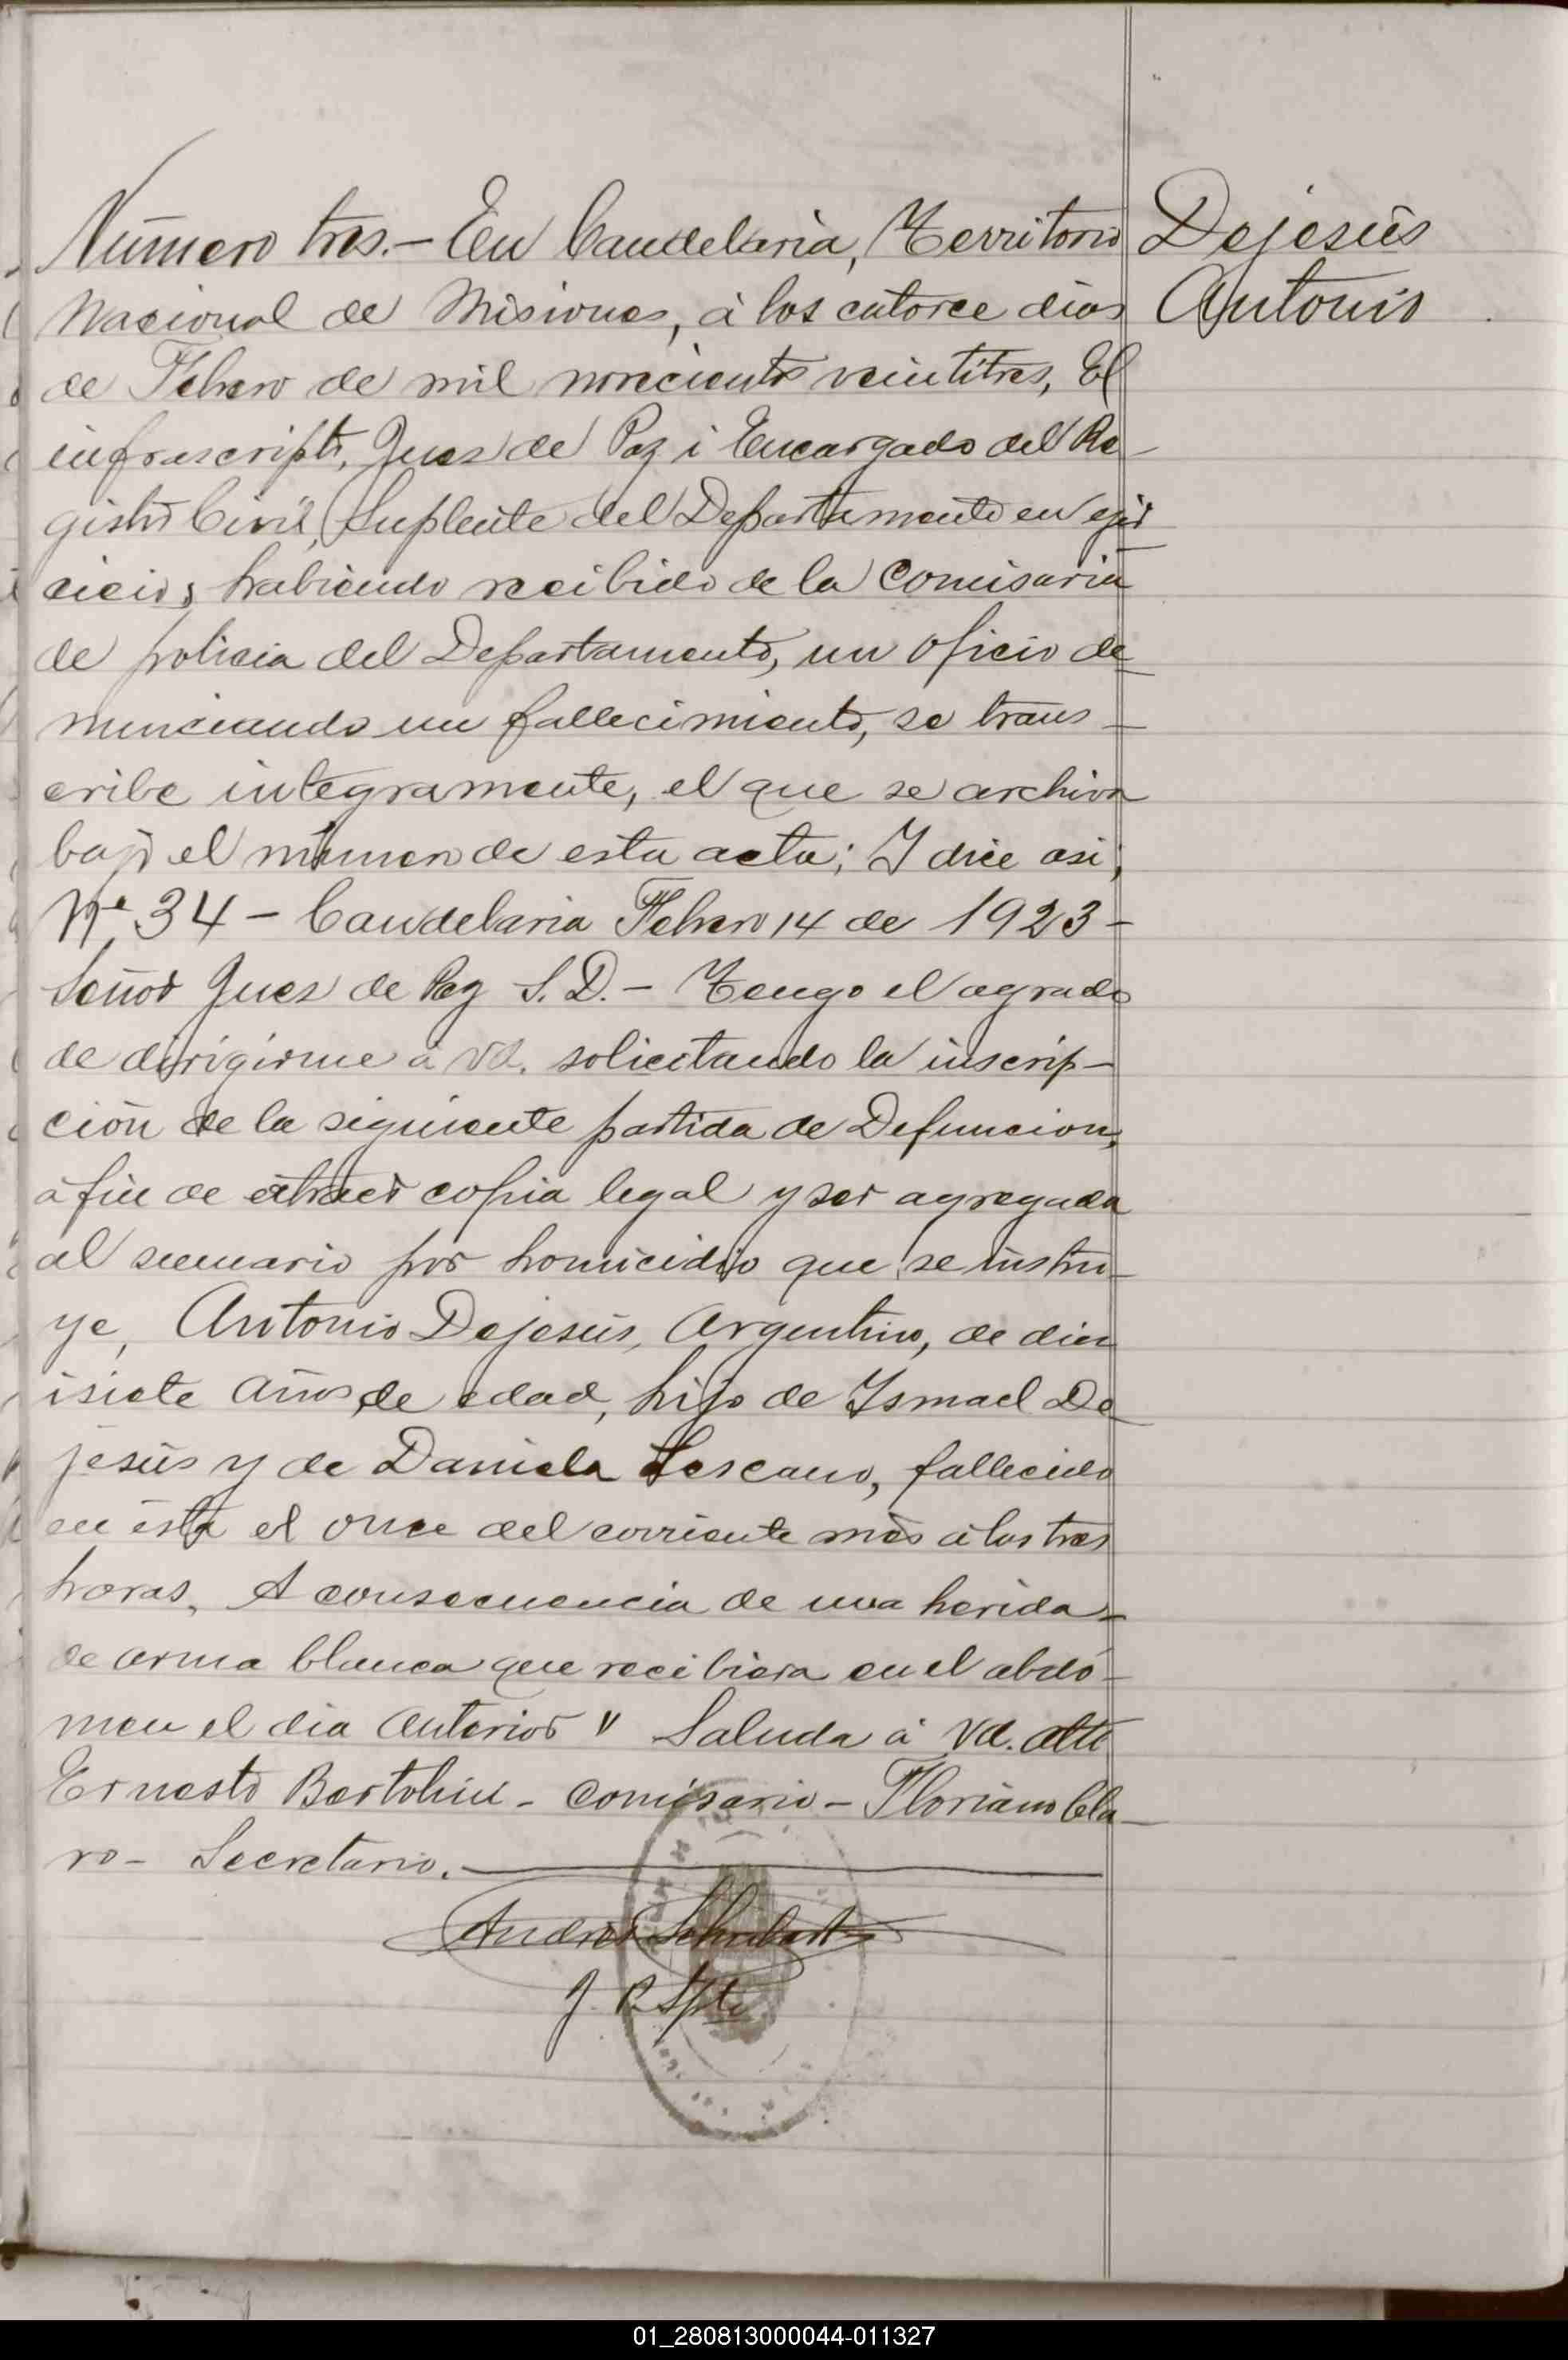 Número tres.- En Candelaria, Territorio
Dejesús
Nacional de Misiones, á los catorce dias
Antonio
de Febrero de mil noveciento veintitres, El
infrascripto, Jues de Paz i Encargado del Re-
gistro Civil, Suplente del Departamento en ejer
cicio, habiendo recibido de la Comisaria
de policia del Departamento, un oficio de-
nunciando un fallecimiento, se trans-
cribe integramente, el que se archiva
bajo el número de esta acta; I dice asi;
Nº 34 - Candelaria Febrero 14 de 1923 -
Señor Jues de Paz S. D. - Tengo el agrado
de dirigirme á Vd. solicitando la inscrip-
ción de la siguiente partida de Defuncion,
á fin de extraer copia legal y ser agregada
al sumario por homicidio que se instru-
ye, Antonio Dejesús, Argentino, de diez
isiete años de edad, hijo de Ismael De
jesús y de Daniela Lescano, fallecido
en ésta el once del corriente mes á las tres
horas, A consecuencia de una herida-
de arma blanca que recibiera en el abdó-
men el dia anterior " Saluda á Vd. atte
Ernesto Bertolini - Comisario - Floriano Cla-
ro - Secretario.
Andrés Schubert
J. P. Splte
01_280813000044-011327